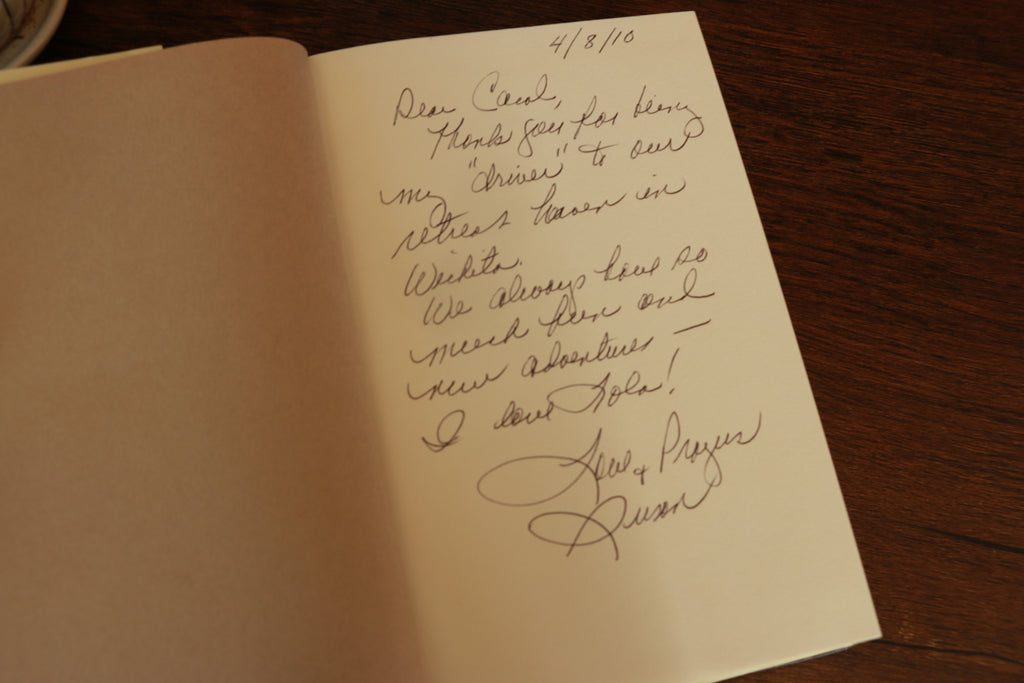 4/8/10
Dear Carol,
Thank you for being
my "driver" to our
retreat haven in
Wichita.
We always have so
much fun and
new adventures —
I love Lola!
Love + Prayers
Susan